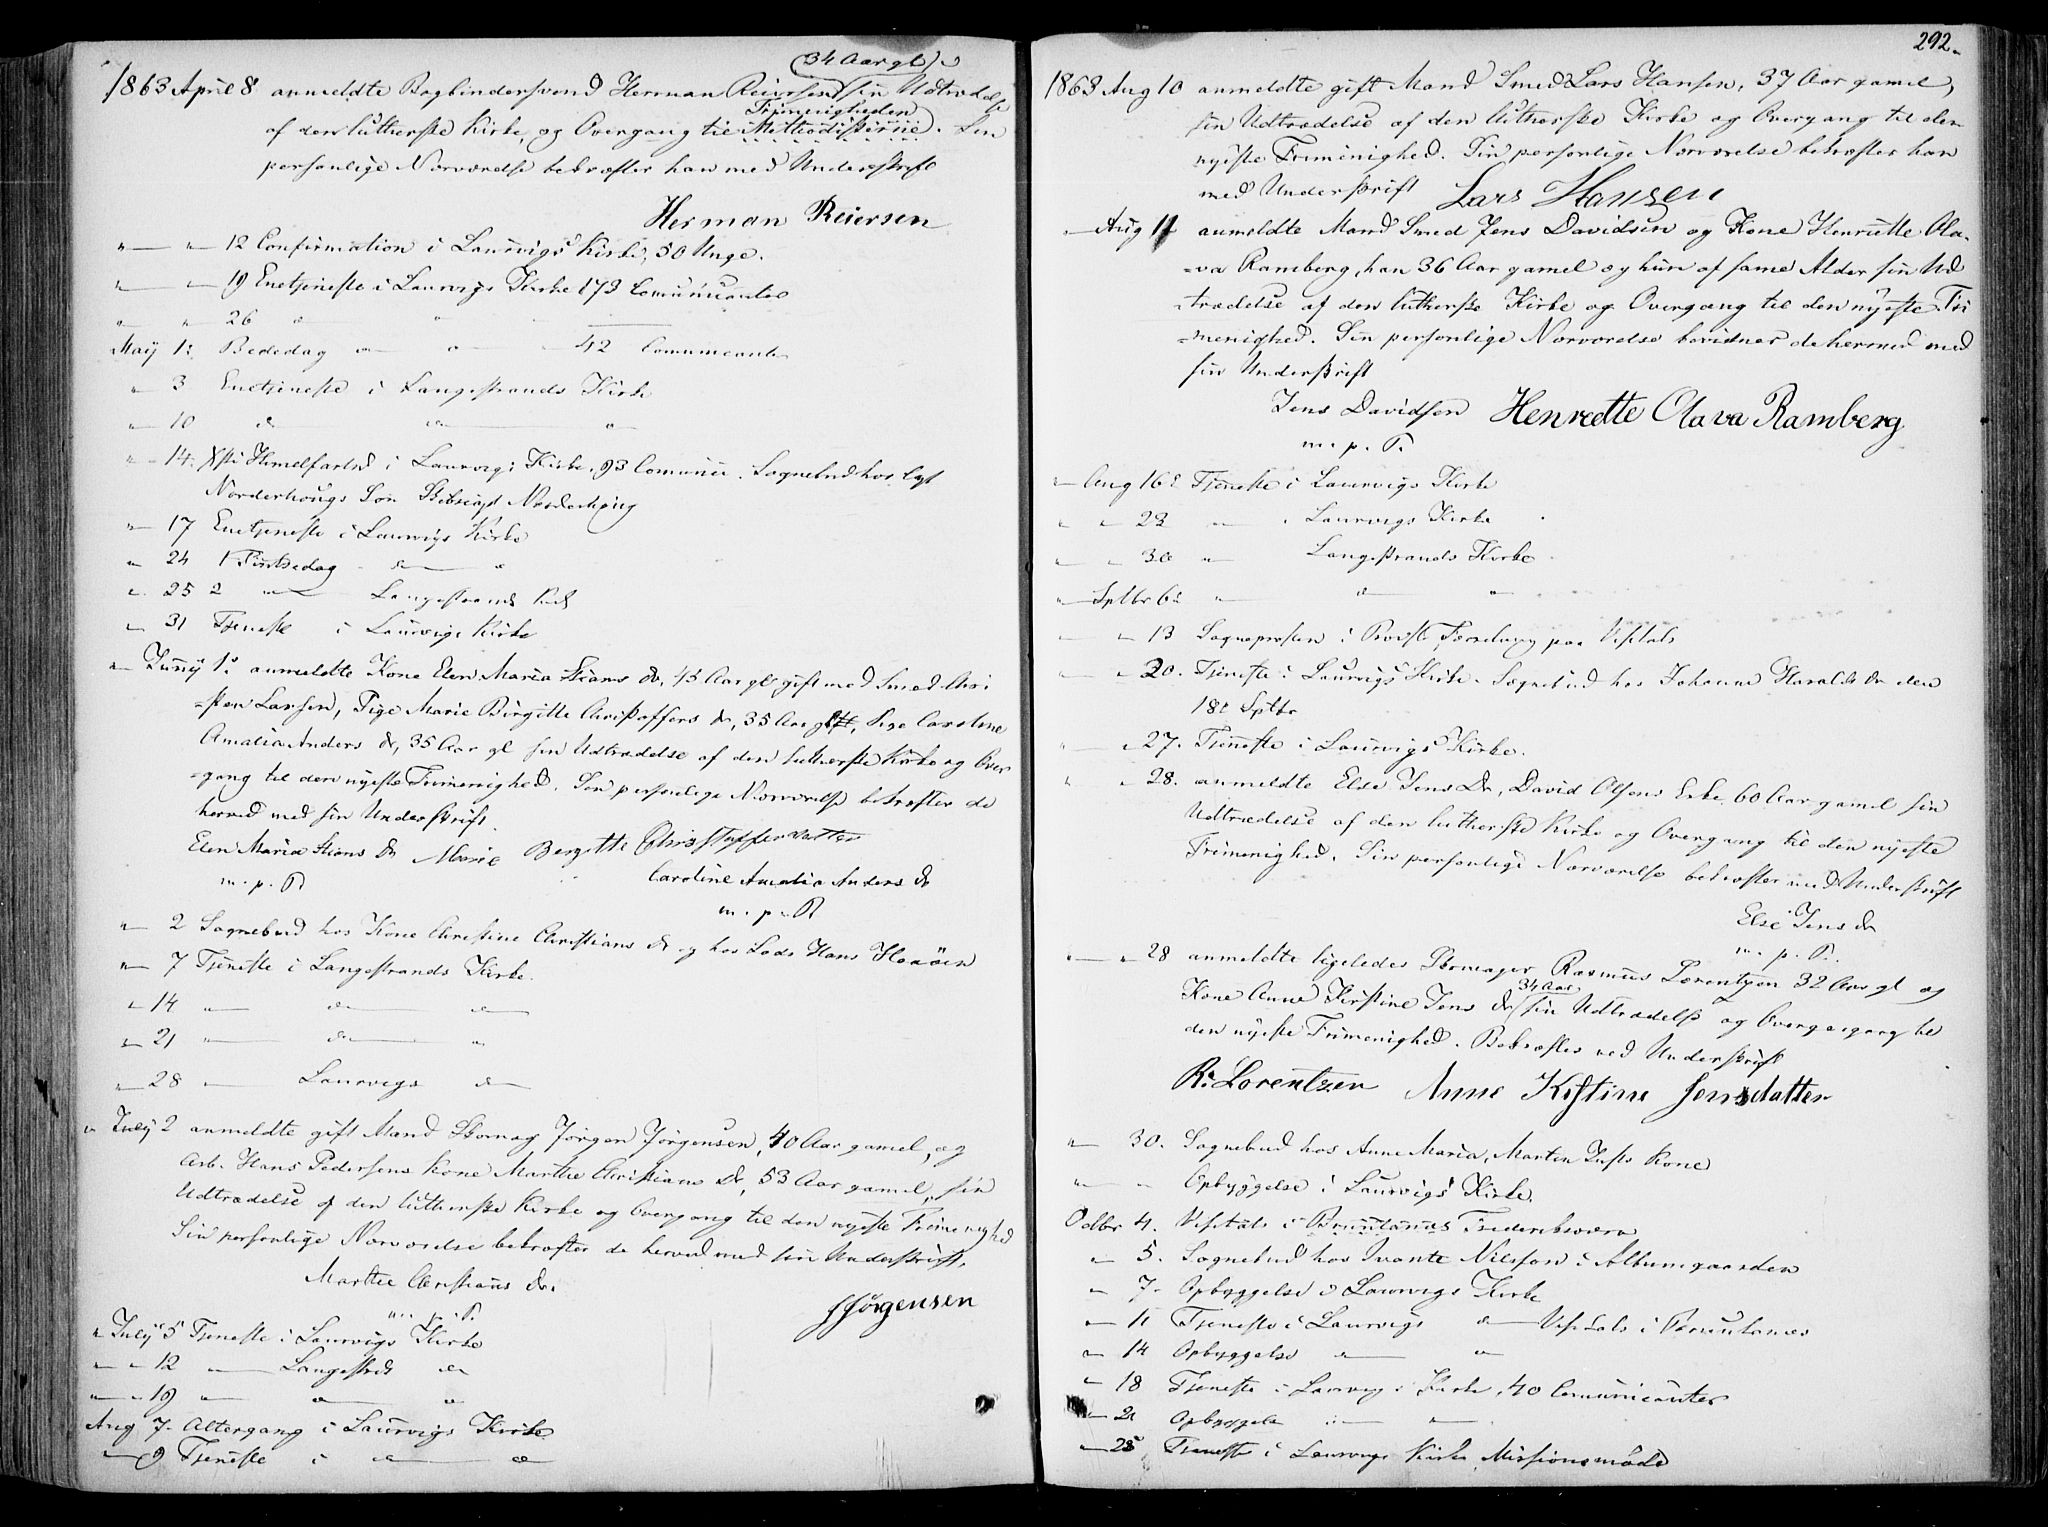 (34 Aar gl)
1863 April 8 anmeldte Bogbindersvend Herman Reiersen sin Udtrædelse
Frimenigheden
af den lutherske Kirke, og Overgang til Methodisterne). Sin
personlige Nærværelse bekræfter han med Underskrift
Herman Reiersen
" — " 12 Confirmation i Laurvigs Kirke, 50 Unge.
" — " 19 Enetjeneste i Laurvigs Kirke 173 Comunicanter
" " 26 do "
Maij 1: Bededag do " 42 Comunicanter
" 3 Enetjeneste i Langestrands Kirke
" 10 do do "
" 14. Xsti Himelfartsd i Laurvigs Kirke, 93 Comunic. Sognebud hos
Norderhougs Søn Norderhoug
" 17 Enetjeneste i Laurvigs Kirke
" 24 1 Pintsedag do "
" 25 2 " Langestrands Kirk
" 31 Tjeneste i Laurvigs Kirke
" Junij 1: anmeldte Kone Elen Maria Stians dr, 45 Aar gl gift med Smed Chri-
=sten Larsen, Pige Marie Birgitte Christoffers dr, 35 Aar gl, Pige Caroline
Amalia Anders dr, 35 Aar gl sin Udtrædelse af den lutherske Kirke og Over-
=gang til den nyeste Frimenighed. Sin personlige Nærværelse bekræfter de
herved med sin Underskrift.
Elen Maria Stians dr Marie Bergitte Christofferdatter
m. p. P. Caroline Amalia Anders dr
m. p. P.
" 2 Sognebud hos Kone Christine Christians dr og hos Lods Hans Haaøen
" 7 Tjeneste i Langestrands Kirke.
" 14 " do do
" 21 " do "
" 28 " Laurvigs do
" Julij 2 anmeldte gift Mand Skomag Jørgen Jørgensen, 40 Aar gamel, og
Arb. Hans Pedersens Kone Marthe Christians dr, 53 Aar gamel, sin
Udtrædelse af den lutherske Kirke og Overgang til den nyeste Frimenighed
Sin personlige Nærværelse bekræfter de herved med sin Underskrift.
Marthe Christians dr.
m. p. P. J Jørgensen
" Julij 5 Tjeneste i Laurvigs Kirke
" " 12 " Langestrds do
" " 19 " do "
Aug 7. Altergang i Laurvigs Kirke
" 9 Tjeneste i do do
292.
1863 Aug 10 anmeldte gift Mand Smed Lars Hansen, 37 Aar gamel,
sin Udtrædelse af den lutherske Kirke og Overgang til den
nyeste Frimenighed. Sin personlige Nærværelse bekræfter han
med Underskrift Lars Hansen
" Aug 11 anmeldte Mand Smed Jens Davidsen og Kone Henriette Ola-
=va Ramberg, han 36 Aar gamel og hun af same Alder sin Ud
=trædelse af den lutherske Kirke og Overgang til den nyeste Fri
=menighed. Sin personlige Nærværelse bevidner de hermed med
sin Underskrift
Jens Davidsen Henreette Olava Ramberg
m. p. P.
" Aug 16: Tjeneste i Laurvigs Kirke
" " 23 " i Laurvigs Kirke
" " 30 " Langestrands Kirke
" Sptbr 6: " do "
" " 13 Sognepresten i Provste Forretning paa Visitats
" " 20. Tjeneste i Laurvigs Kirke. Sognebud hos Johanne Haralds dr den
18: Sptbr
" " 27. Tjeneste i Laurvigs Kirke.
" " 28. anmeldte Else Jens Dr, David Olsens Enke, 60 Aar gamel sin
Udtrædelse af den lutherske Kirke og Overgang til den nyeste
Frimenighed. Sin personlige Nærværelse bekræfter med Underskrift
Else Jens dr
m. p. P.
" " 28 anmeldte ligeledes Skomager Rasmus Lorentzen 32 Aar gl og
34 Aar
Kone Anne Kirstine Jens dr sin Udtrædelse og Overgang til
den nyeste Frimenighed. Bekræftes ved Underskrift
R. Lorentzen Anne Kistine Jensdatter
" 30. Sognebud hos Anne Maria, Martin Justs Kone
" " Opbyggelse i Laurvigs Kirke.
Octbr 4. Visitats i Brunlanæs Frederiksværn
" 5. Sognebud hos Svante Nilsson i Albumgaarden
" 7. Opbyggelse i Laurvigs Kirke
" 11 Tjeneste i Laurvigs do Visitats i Brunlanæs
" 14 Opbyggelse do "
" 18 Tjeneste i Laurvigs Kirke, 40 Comunicanter
" 21 Opbyggelse do "
" 25 Tjeneste i Laurvigs Kirke Missionsmøde